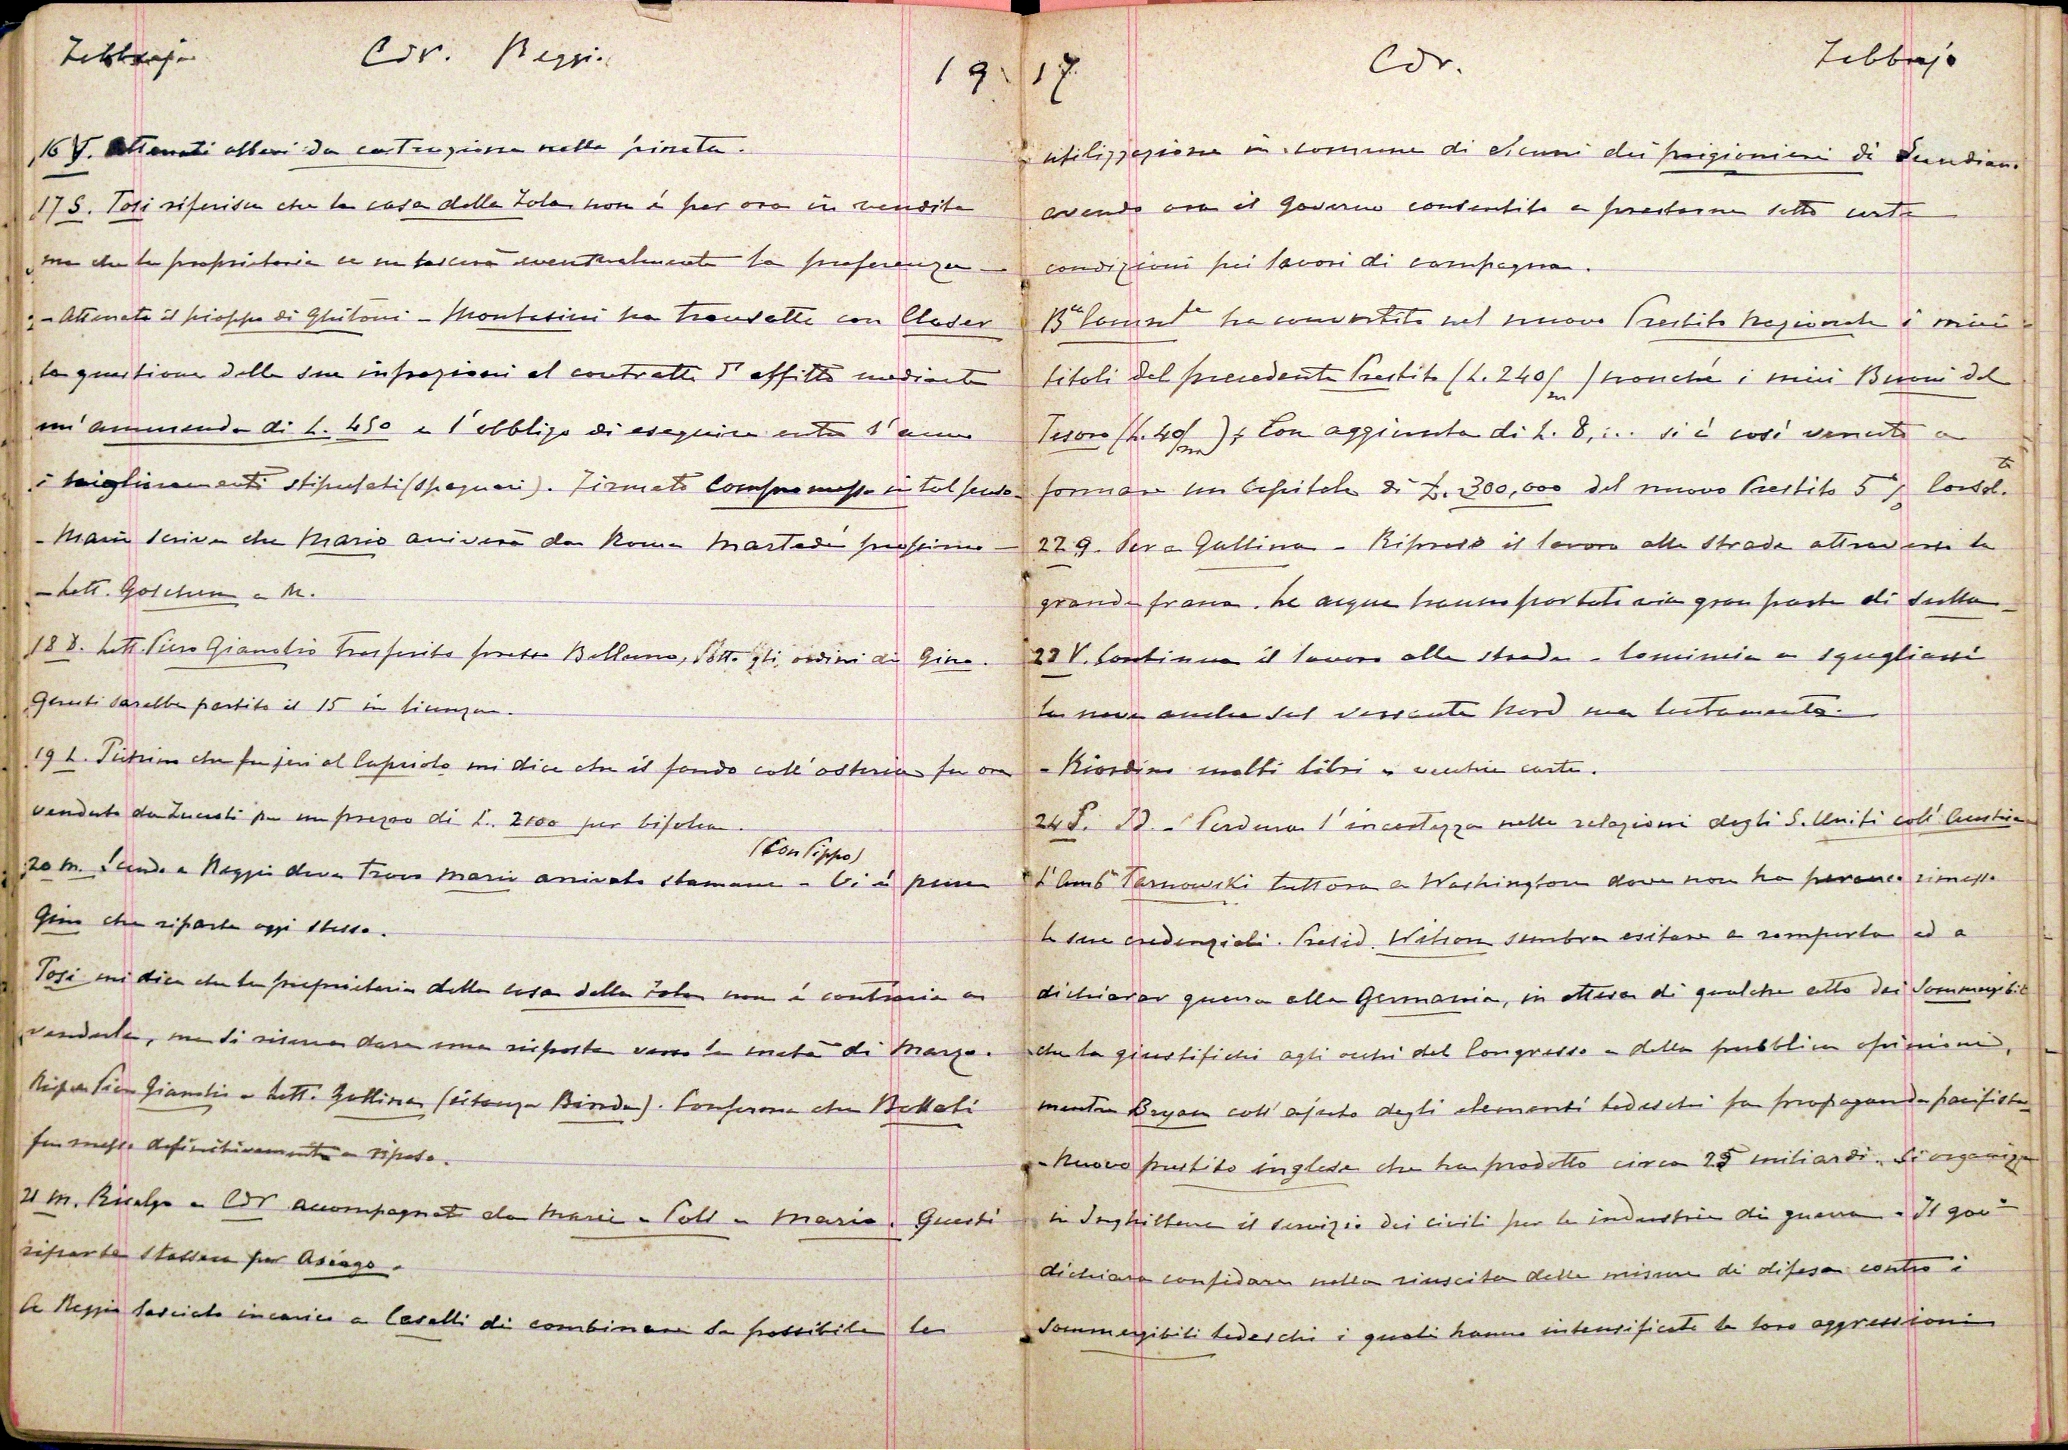 Febbrajo Cdr. Reggio 19
16 V. Atterrati alberi da costruzione nella pineta.
17 S. Tosi riferisce che la casa della Zola non è per ora in vendita
ma che la proprietaria ce ne lascerà eventualmente la preferenza —
- Atterrato il pioppo di Ghitoni - Montesini ha transatto con
la questione delle sue infrazioni al contratto d'affitto mediante
un'ammenda di L. 450 e l'obbligo di eseguire entro l'anno
i miglioramenti stipulati (spagnari). Firmato compromesso in tal senso.
- Mariù scrive che Mario arriverà da Roma Martedì prossimo —
- Lett. Goschen a M.
18 D. Lett. Piero Gianolio trasferito presso Belluno, sotto gli ordini di Gino.
Questi sarebbe partito il 15 in licenza.
19 L. che fu jeri al Capriolo mi dice che il fondo coll'osteria fu ora
venduto da Zucoli per un prezzo di L. 2100 per bifolca.
(Con Pippo)
20 M. Scendo a Reggio dove trovo Mario arrivato stamane - Vi è pure
Gino che riparte oggi stesso.
Tosi mi dice che la proprietaria della casa della Zola non è contraria a
venderla, ma si riserva dare una risposta verso la metà di Marzo.
Risp. a Piero Gianolio e Lett. Gallina (istanza Binda). Conferma che Bellati
fu messo definitivamente a riposo.
21 M. Risalgo a Cdr accompagnato da Mariù e Poll e Mario. Questi
riparte stassera per Asiago.
A Reggio lasciato incarico a Caselli di combinare se possibile la
17 Cdr. Febbrajo
utilizzazione in comune di alcuni dei prigionieri di Scandiano
avendo ora il Governo consentito a prestarne sotto certe
condizioni pei lavori di campagna.
Bca Commle ha convertito nel nuovo Prestito Nazionale i miei
titoli del precedente Prestito (L. 240/m) nonché i miei Buoni del
Tesoro (L. 40/m); Con aggiunta di L. 8,... si è così venuto a
formare un capitale di L. 300,000 del nuovo Prestito 5% Consol.to
22 G. Per a Gallina - Ripreso il lavoro alla strada attraverso la
grande frana. Le acque hanno portato via gran parte di
23 V. Continua il lavoro alla strada - Comincia a squagliarsi
la neve anche sul versante Nord ma lentamente.
- Riordino molti libri e vecchie carte.
24 S. Id. - Perdura l'incertezza nelle relazioni degli S. Uniti coll'Austria
L'Ambe Tarnowski tuttora a Washington dove non ha peranco rimesso
le sue credenziali. Presid. Wilson sembra esitare a romperla ed a
dichiarar guerra alla Germania, in attesa di qualche atto dei Sommergibili
che la giustifichi agli occhi del Congresso e della pubblica opinione,
mentre Bryan coll'ajuto degli elementi tedeschi fa propaganda pacifista
- Nuovo prestito inglese che ha prodotto circa 25 miliardi. Si organizza
in Inghilterra il servizio dei civili per le industrie di guerra - Il govo
dichiara confidare nella riuscita delle misure di difesa contro i
sommergibili tedeschi i quali hanno intensificate le loro aggressioni